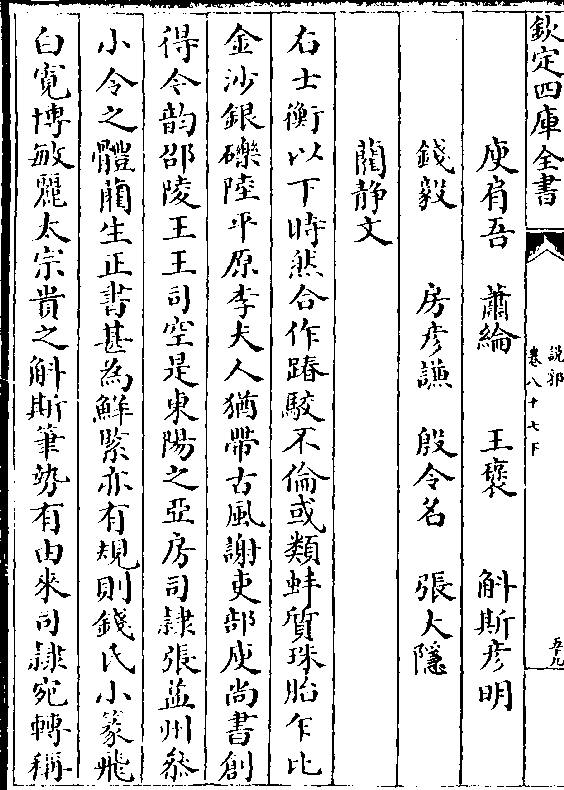 欽定四庫全書
說郛
卷八十七下
五十九
庾肩吾 蕭綸 王褒 斛斯彦明
錢毅 房彦謙 殷令名 張大隱
藺静文
右士衡以下時然合作踳駮不倫或類蚌質珠胎乍比
金沙銀礫陸平原李夫人猶帶古風謝吏部庾尚書創
得今韵邵陵王王司空是東陽之亞房司隷張益州叅
小令之體藺生正書甚為鮮緊亦有規則錢氏小篆飛
白寛博敏麗太宗貴之斛斯筆勢有由來司隷宛轉稱